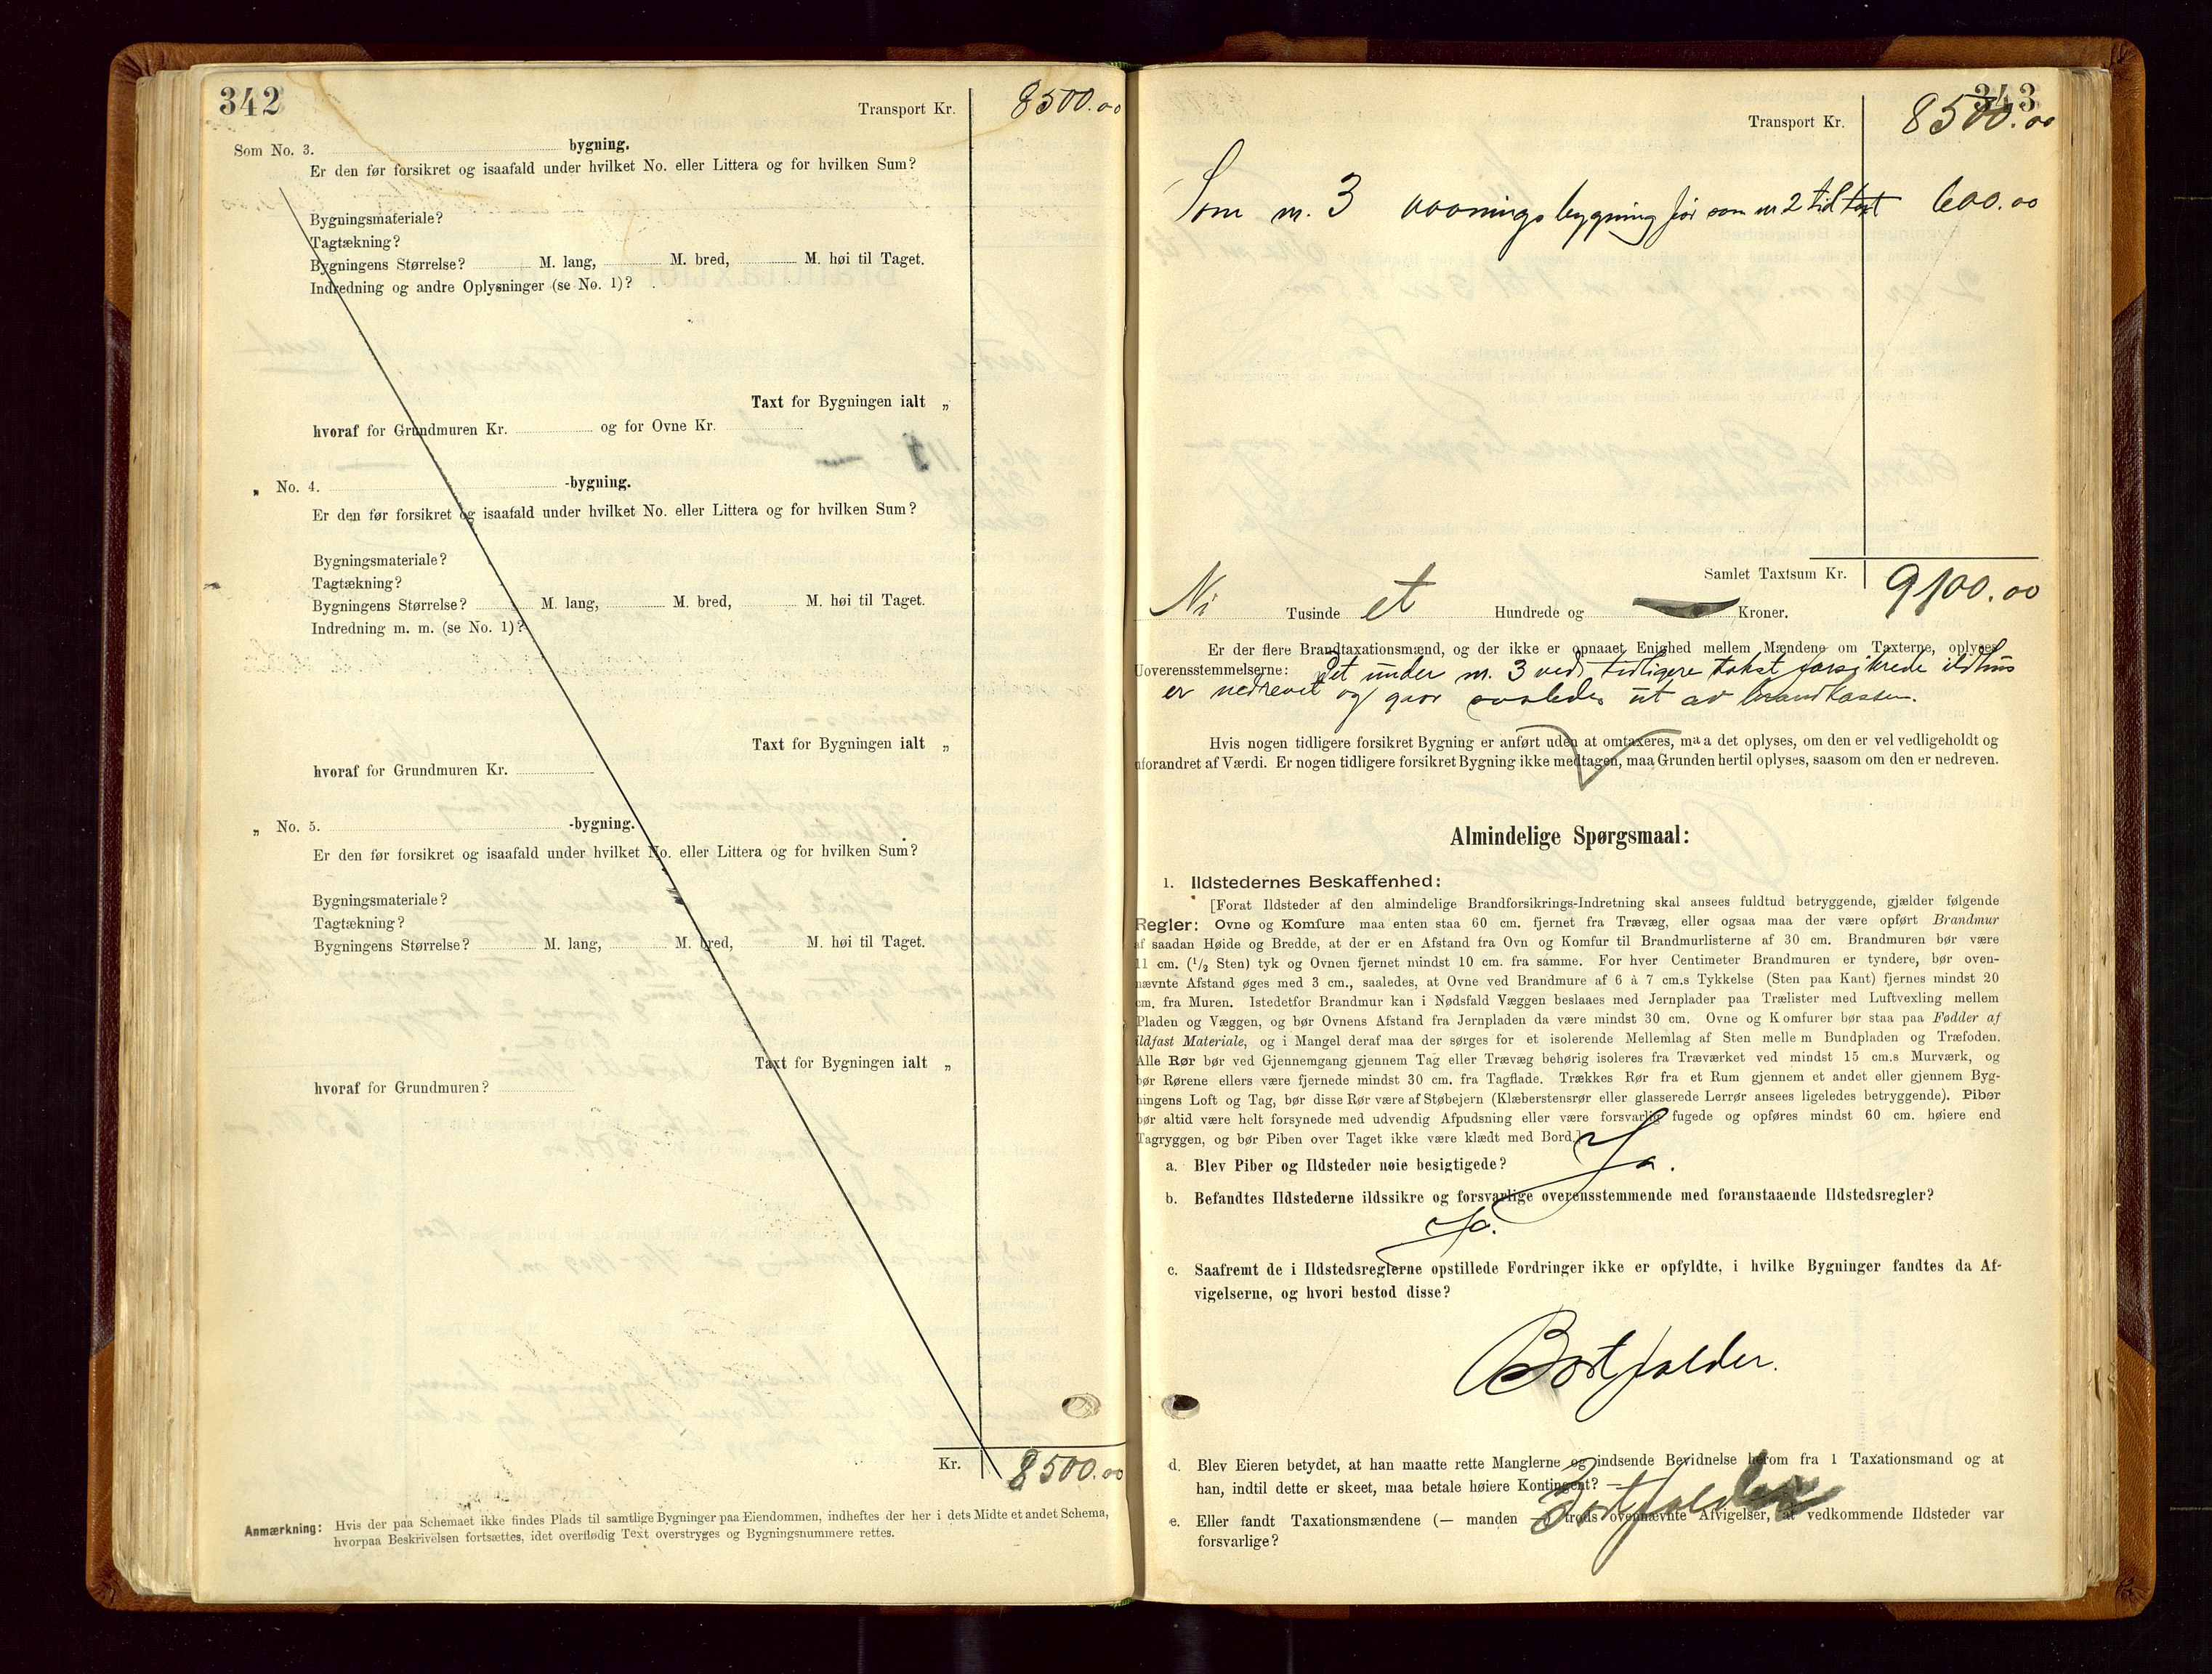 342
Transport Kr. 8500.00
Som No. 3. bygning.
Er den før forsikret og isaafald under hvilket No. eller Littera og for hvilken Sum?
Bygningsmateriale?
Tagtækning?
Bygningens Størrelse? M. lang, M. bred, M. høi til Taget.
Indredning og andre Oplysninger (se No. 1)?
Taxt for Bygningen ialt „
hvoraf for Grundmuren Kr. og for Ovne Kr.
„ No. 4. -bygning.
Er den før forsikret og isaafald under hvilket No. eller Littera og for hvilken Sum?
Bygningsmateriale?
Tagtækning?
Bygningens Størrelse? M. lang, M. bred, M. høi til Taget.
Indredning m. m. (se No. 1)?
Taxt for Bygningen ialt „
hvoraf for Grundmuren Kr.
„ No. 5. -bygning.
Er den før forsikret og isaafald under hvilket No. eller Littera og for hvilken Sum?
Bygningsmateriale?
Tagtækning?
Bygningens Størrelse? M. lang, M. bred, M. høi til Taget.
Taxt for Bygningen ialt „
hvoraf for Grundmuren?
Kr. 8500.00
Anmærkning: Hvis der paa Schemaet ikke findes Plads til samtlige Bygninger paa Eiendommen, indheftes der her i dets Midte et andet Schema,
hvorpaa Beskrivelsen fortsættes, idet overflødig Text overstryges og Bygningsnummere rettes.
343
Transport Kr. 8500.00
Som nr. 3 vaaningsbygning før som nr 2 tid takst 600.00
Samlet Taxtsum Kr. 9100.00
Ni Tusinde et Hundrede og Kroner.
Er der flere Brandtaxationsmænd, og der ikke er opnaaet Enighed mellem Mændene om Taxterne, oplyses
Uoverensstemmelserne: Det under nr. 3 ved tidligere takst forsikrede ildhus
er nedrevet og gaar saaledes ut av brandkassen.
Hvis nogen tidligere forsikret Bygning er anført uden at omtaxeres, maa det oplyses, om den er vel vedligeholdt og
uforandret af Værdi. Er nogen tidligere forsikret Bygning ikke medtagen, maa Grunden hertil oplyses, saasom om den er nedreven.
Almindelige Spørgsmaal:
1. Ildstedernes Beskaffenhed:
[Forat Ildsteder af den almindelige Brandforsikrings-Indretning skal ansees fuldtud betryggende, gjælder følgende
Regler: Ovne og Komfure maa enten staa 60 cm. fjernet fra Trævæg, eller ogsaa maa der være opført Brandmur
af saadan Høide og Bredde, at der er en Afstand fra Ovn og Komfur til Brandmurlisterne af 30 cm. Brandmuren bør være
11 cm. (1/2 Sten) tyk og Ovnen fjernet mindst 10 cm. fra samme. For hver Centimeter Brandmuren er tyndere, bør oven-
nævnte Afstand øges med 3 cm., saaledes, at Ovne ved Brandmure af 6 à 7 cm.s Tykkelse (Sten paa Kant) fjernes mindst 20
cm. fra Muren. Istedetfor Brandmur kan i Nødsfald Væggen beslaaes med Jernplader paa Trælister med Luftvexling mellem
Pladen og Væggen, og bør Ovnens Afstand fra Jernpladen da være mindst 30 cm. Ovne og Komfurer bør staa paa Fødder af
ildfast Materiale, og i Mangel deraf maa der sørges for et isolerende Mellemlag af Sten mellem Bundpladen og Træfoden.
Alle Rør bør ved Gjennemgang gjennem Tag eller Trævæg behørig isoleres fra Træværket ved mindst 15 cm.s Murværk, og
bør Rørene ellers være fjernede mindst 30 cm. fra Tagflade. Trækkes Rør fra et Rum gjennem et andet eller gjennem Byg-
ningens Loft og Tag, bør disse Rør være af Støbejern (Klæberstensrør eller glasserede Lerrør ansees ligeledes betryggende). Piber
bør altid være helt forsynede med udvendig Afpudsning eller være forsvarlig fugede og opføres mindst 60 cm. høiere end
Tagryggen, og bør Piben over Taget ikke være klædt med Bord.]
a. Blev Piber og Ildsteder nøie besigtigede? Ja.
b. Befandtes Ildstederne ildssikre og forsvarlige overensstemmende med foranstaaende Ildstedsregler?
Ja.
c. Saafremt de i Ildstedsreglerne opstillede Fordringer ikke er opfyldte, i hvilke Bygninger fandtes da Af-
vigelserne, og hvori bestod disse?
Bortfalder.
d. Blev Eieren betydet, at han maatte rette Manglerne og indsende Bevidnelse herom fra 1 Taxationsmand og at
han, indtil dette er skeet, maa betale høiere Kontingent?
Bortfalder
e. Eller fandt Taxationsmændene (— manden —) trods ovennævnte Afvigelser, at vedkommende Ildsteder var
forsvarlige?